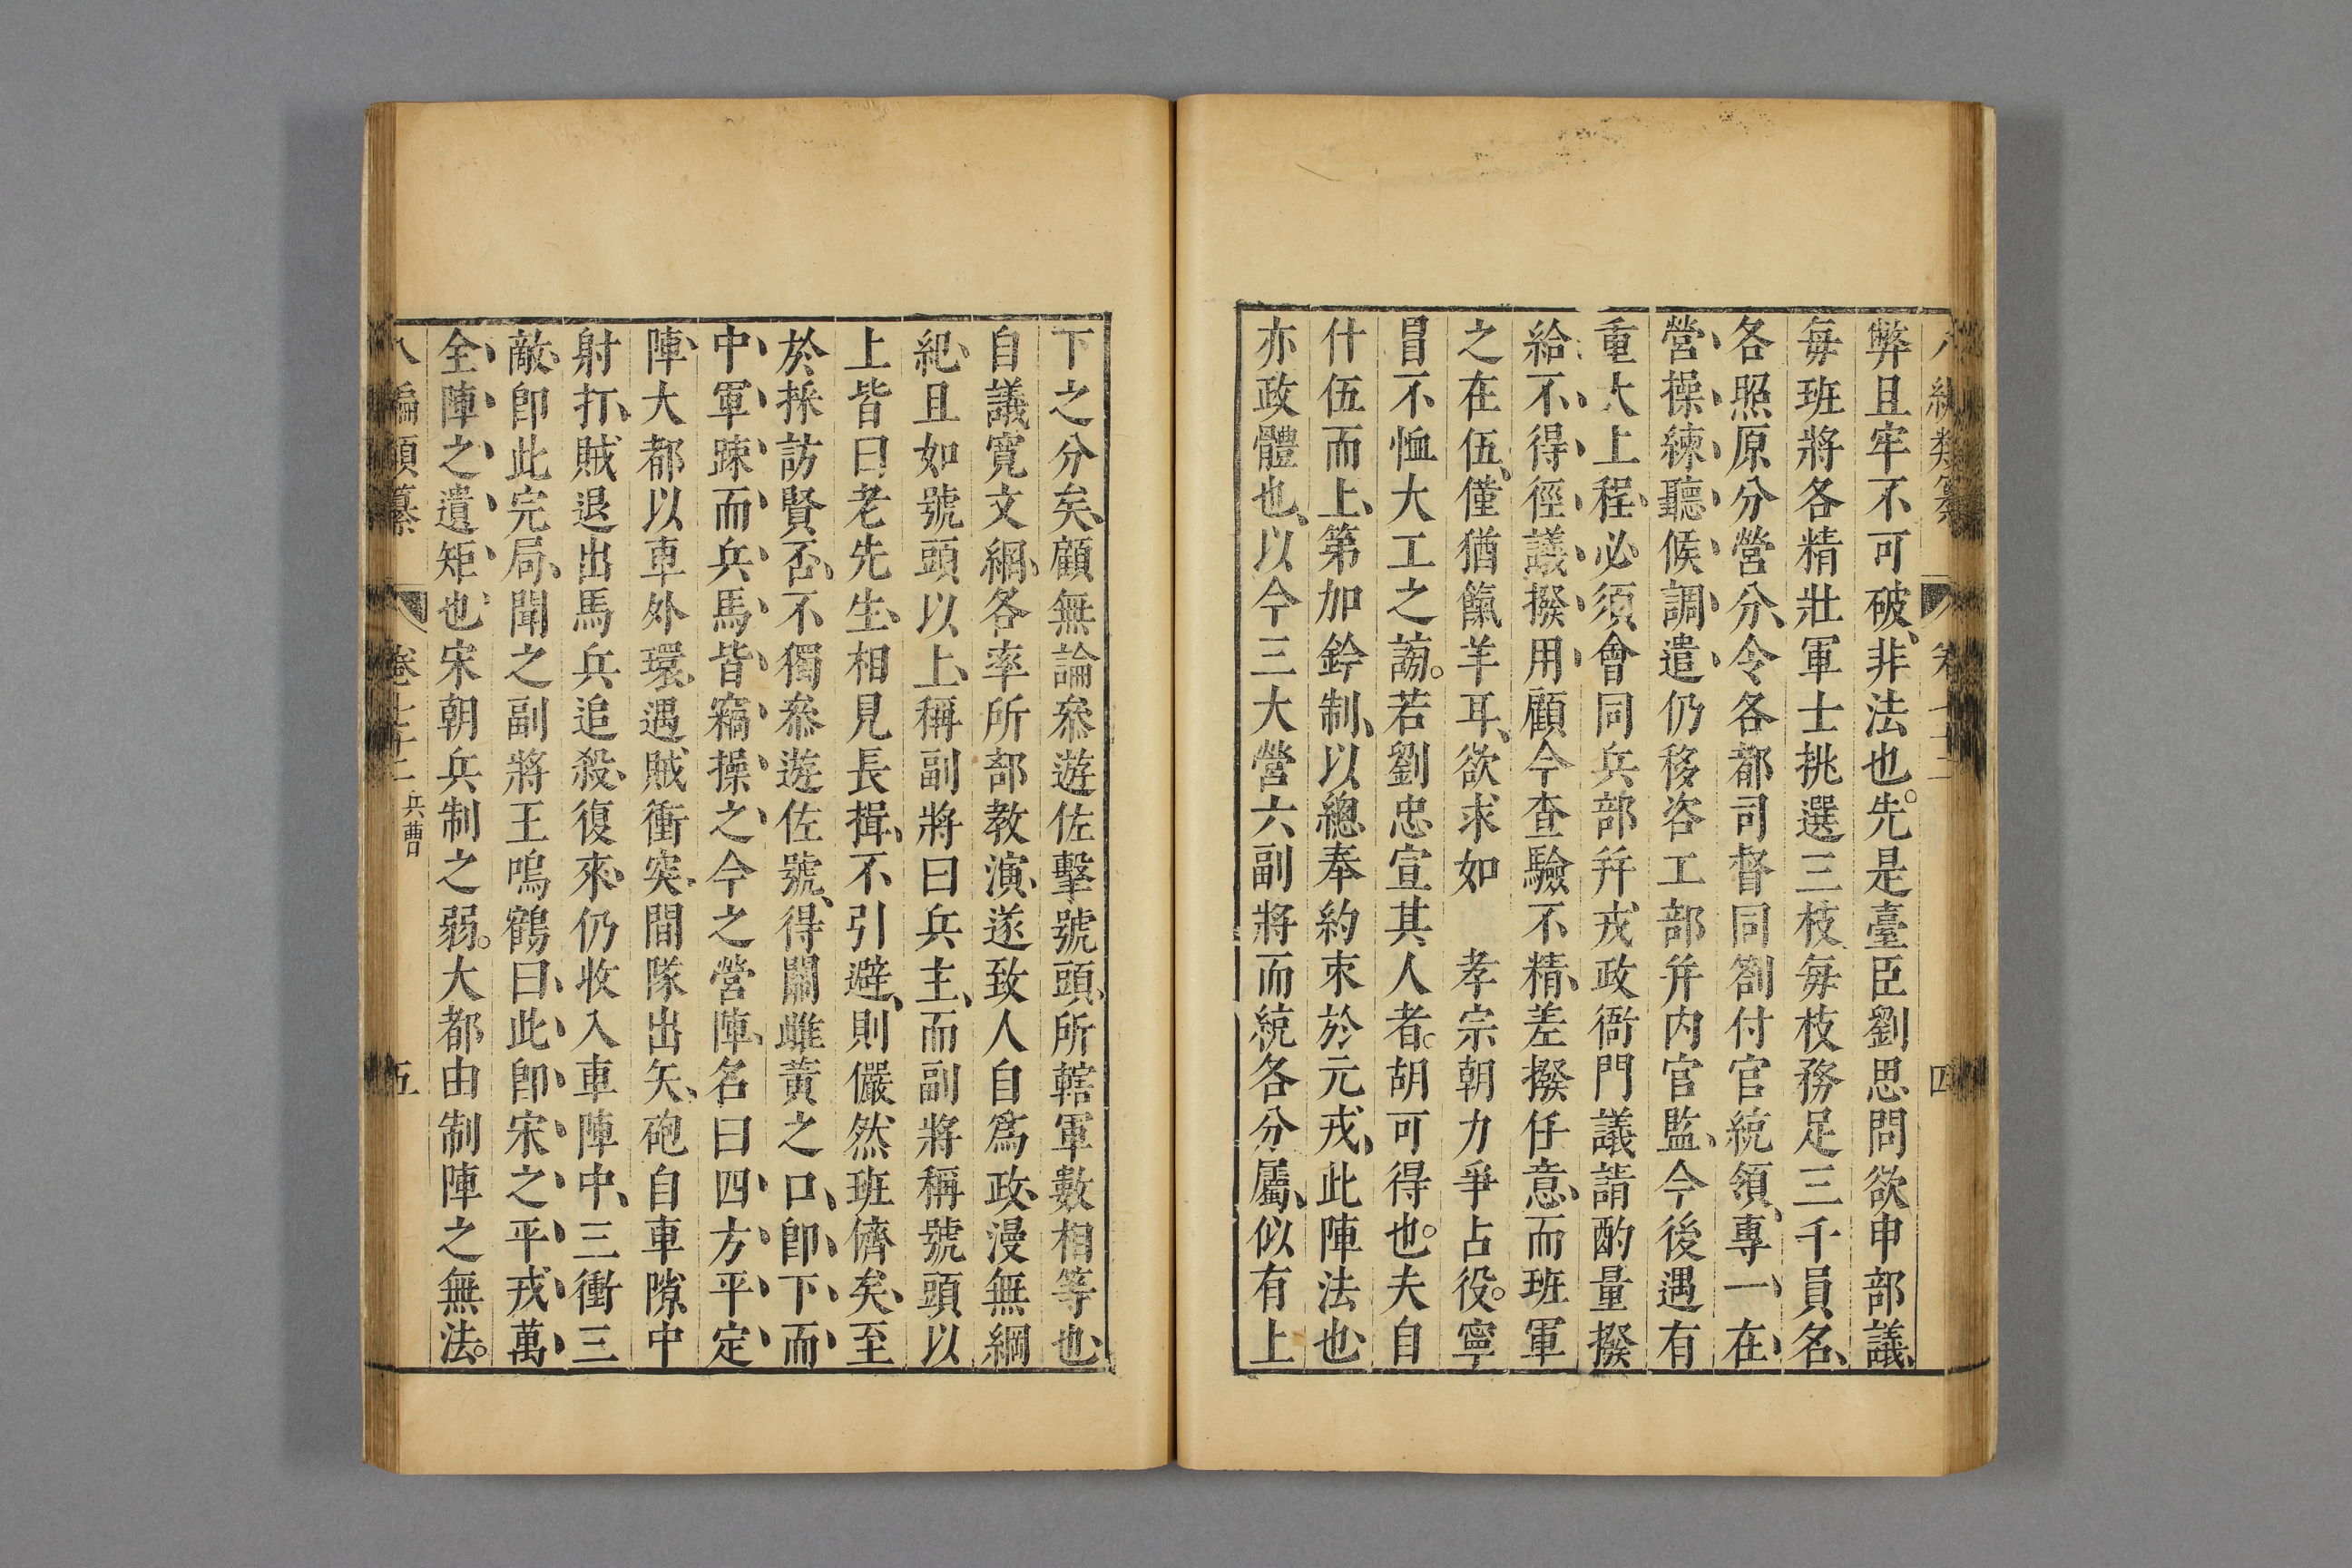 弊且牢不可破、非法也。先是臺臣劉思問欲申部議、
每班將各精壯軍士挑選三枝每枝務足三千員名、
各照原分營分、令各都司督同劄付官統領、專一在
營操練聽候調遣仍移咨工部并內官監、今後遇有
重大上程、必須會同兵部幷戎政衙門議請酌量撥
給不得徑議撥用顧今查驗不精、差撥任意、而班軍
之在伍、僅猶餼羊耳、欲求如 孝宗朝力爭占役。寧
冒不恤大工之謗。若劉忠宣其人者。胡可得也。夫自
什伍而上、第加鈐制、以總奉約束於元戎、此陣法也、
亦政體也、以今三大營六副將而統各分屬、似有上
下之分矣、顧無論叅遊佐擊號頭、所轄軍數相等也、
自議寬文綱、各率所部教演、遂致人自爲政、漫無綱
紀、且如號頭以上、稱副將曰兵主、而副將稱號頭以
上皆曰老先生、相見長揖、不引避、則儼然班儕矣、至
於採訪賢否、不獨叅遊佐號、得關雌黃之口、卽下而
中軍踈而兵馬皆竊操之今之營陣、名曰四方平定
陣、大都以車外環、遇賊衝突、間隊出矢、砲自車隙中
射打、賊退出馬兵追殺、復來、仍收入車陣中、三衝三
敵、卽此完局、聞之副將王鳴鶴曰、此卽宋之平戎萬
全陣之遺矩也宋朝兵制之弱。大都由制陣之無法。
八編類纂 卷七十二 兵曹 五